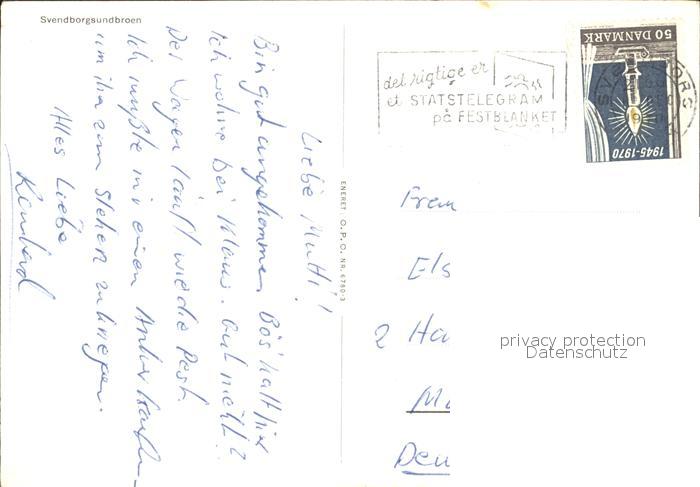 Svendborgsundbroen
Liebe Mutti!
Bin gut angekommen. Bös kalt hier
Ich wohne bei Klaus. Gut nicht?
Der Wagen läuft wie die Post.
Ich mußte mir einen Anker kaufen
um ihn zum Stehen zu kriegen.
Alles Liebe
ENERET O.P.C. NR. 6780-3
det rigtige er
et STATSTELEGRAM
på FESTBLANKET
50 DANMARK
1945-1970
Frau
Els
2 Ha
Mu
Deu
privacy protection
Datenschutz